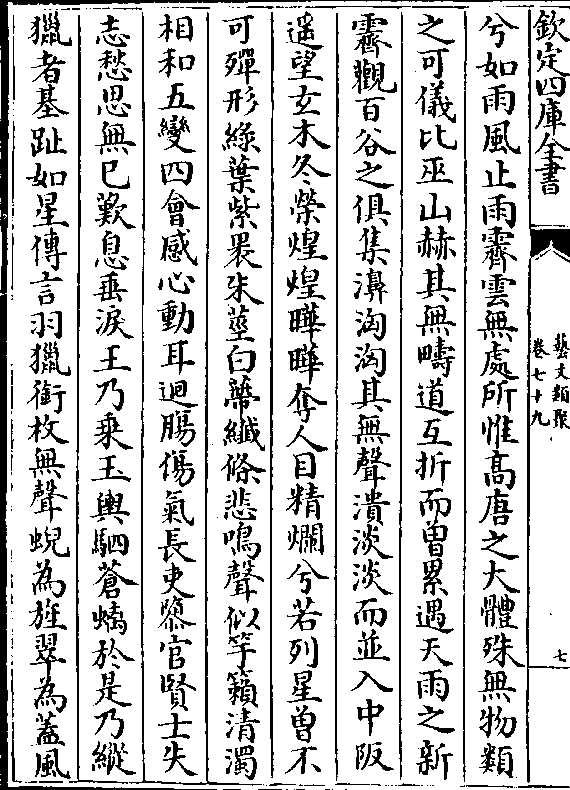 欽定四庫全書
藝文類聚
卷七十九
七
兮如雨風止雨霽雲無處所惟髙唐之大體殊無物類
之可儀比巫山赫其無疇道互折而曽累遇天雨之新
霽觀百谷之俱集濞洶洶其無聲潰淡淡而並入中阪
遥望玄木冬榮煌煌曄曄奪人目精爛兮若列星曽不
可殫形緑葉紫裹朱莖白蔕纎條悲鳴聲似竽籟清濁
相和五變四會感心動耳迴膓傷氣長吏隳官賢士失
志愁思無已歎息垂淚王乃乗玉輿駟蒼螭於是乃縱
獵者基趾如星傳言羽獵銜枚無聲蜺為旌翠為蓋風